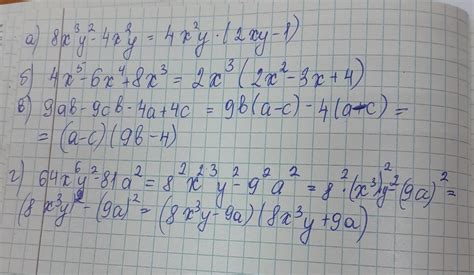 а) 8x³y² - 4x²y = 4x²y · (2xy - 1)
б) 4x⁵ - 6x⁴ + 8x³ = 2x³ (2x² - 3x + 4)
в) 9ab - 9cb - 4a + 4c = 9b(a - c) - 4(a - c) =
= (a - c)(9b - 4)
г) 64x⁶y² - 81a² = 8²x²³y² - 9²a² = 8² · (x³)²y² - (9a)² =
(8x³y)² - (9a)² = (8x³y - 9a)(8x³y + 9a)